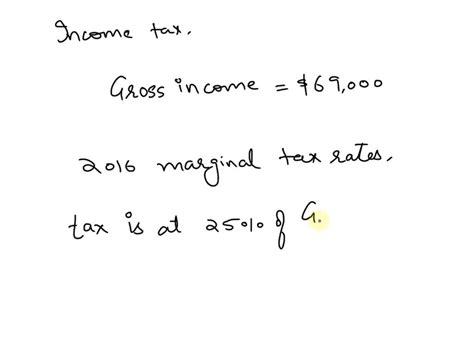 Income tax.
Gross income = $69,000
2016 marginal tax rates.
tax is at 25% of G.